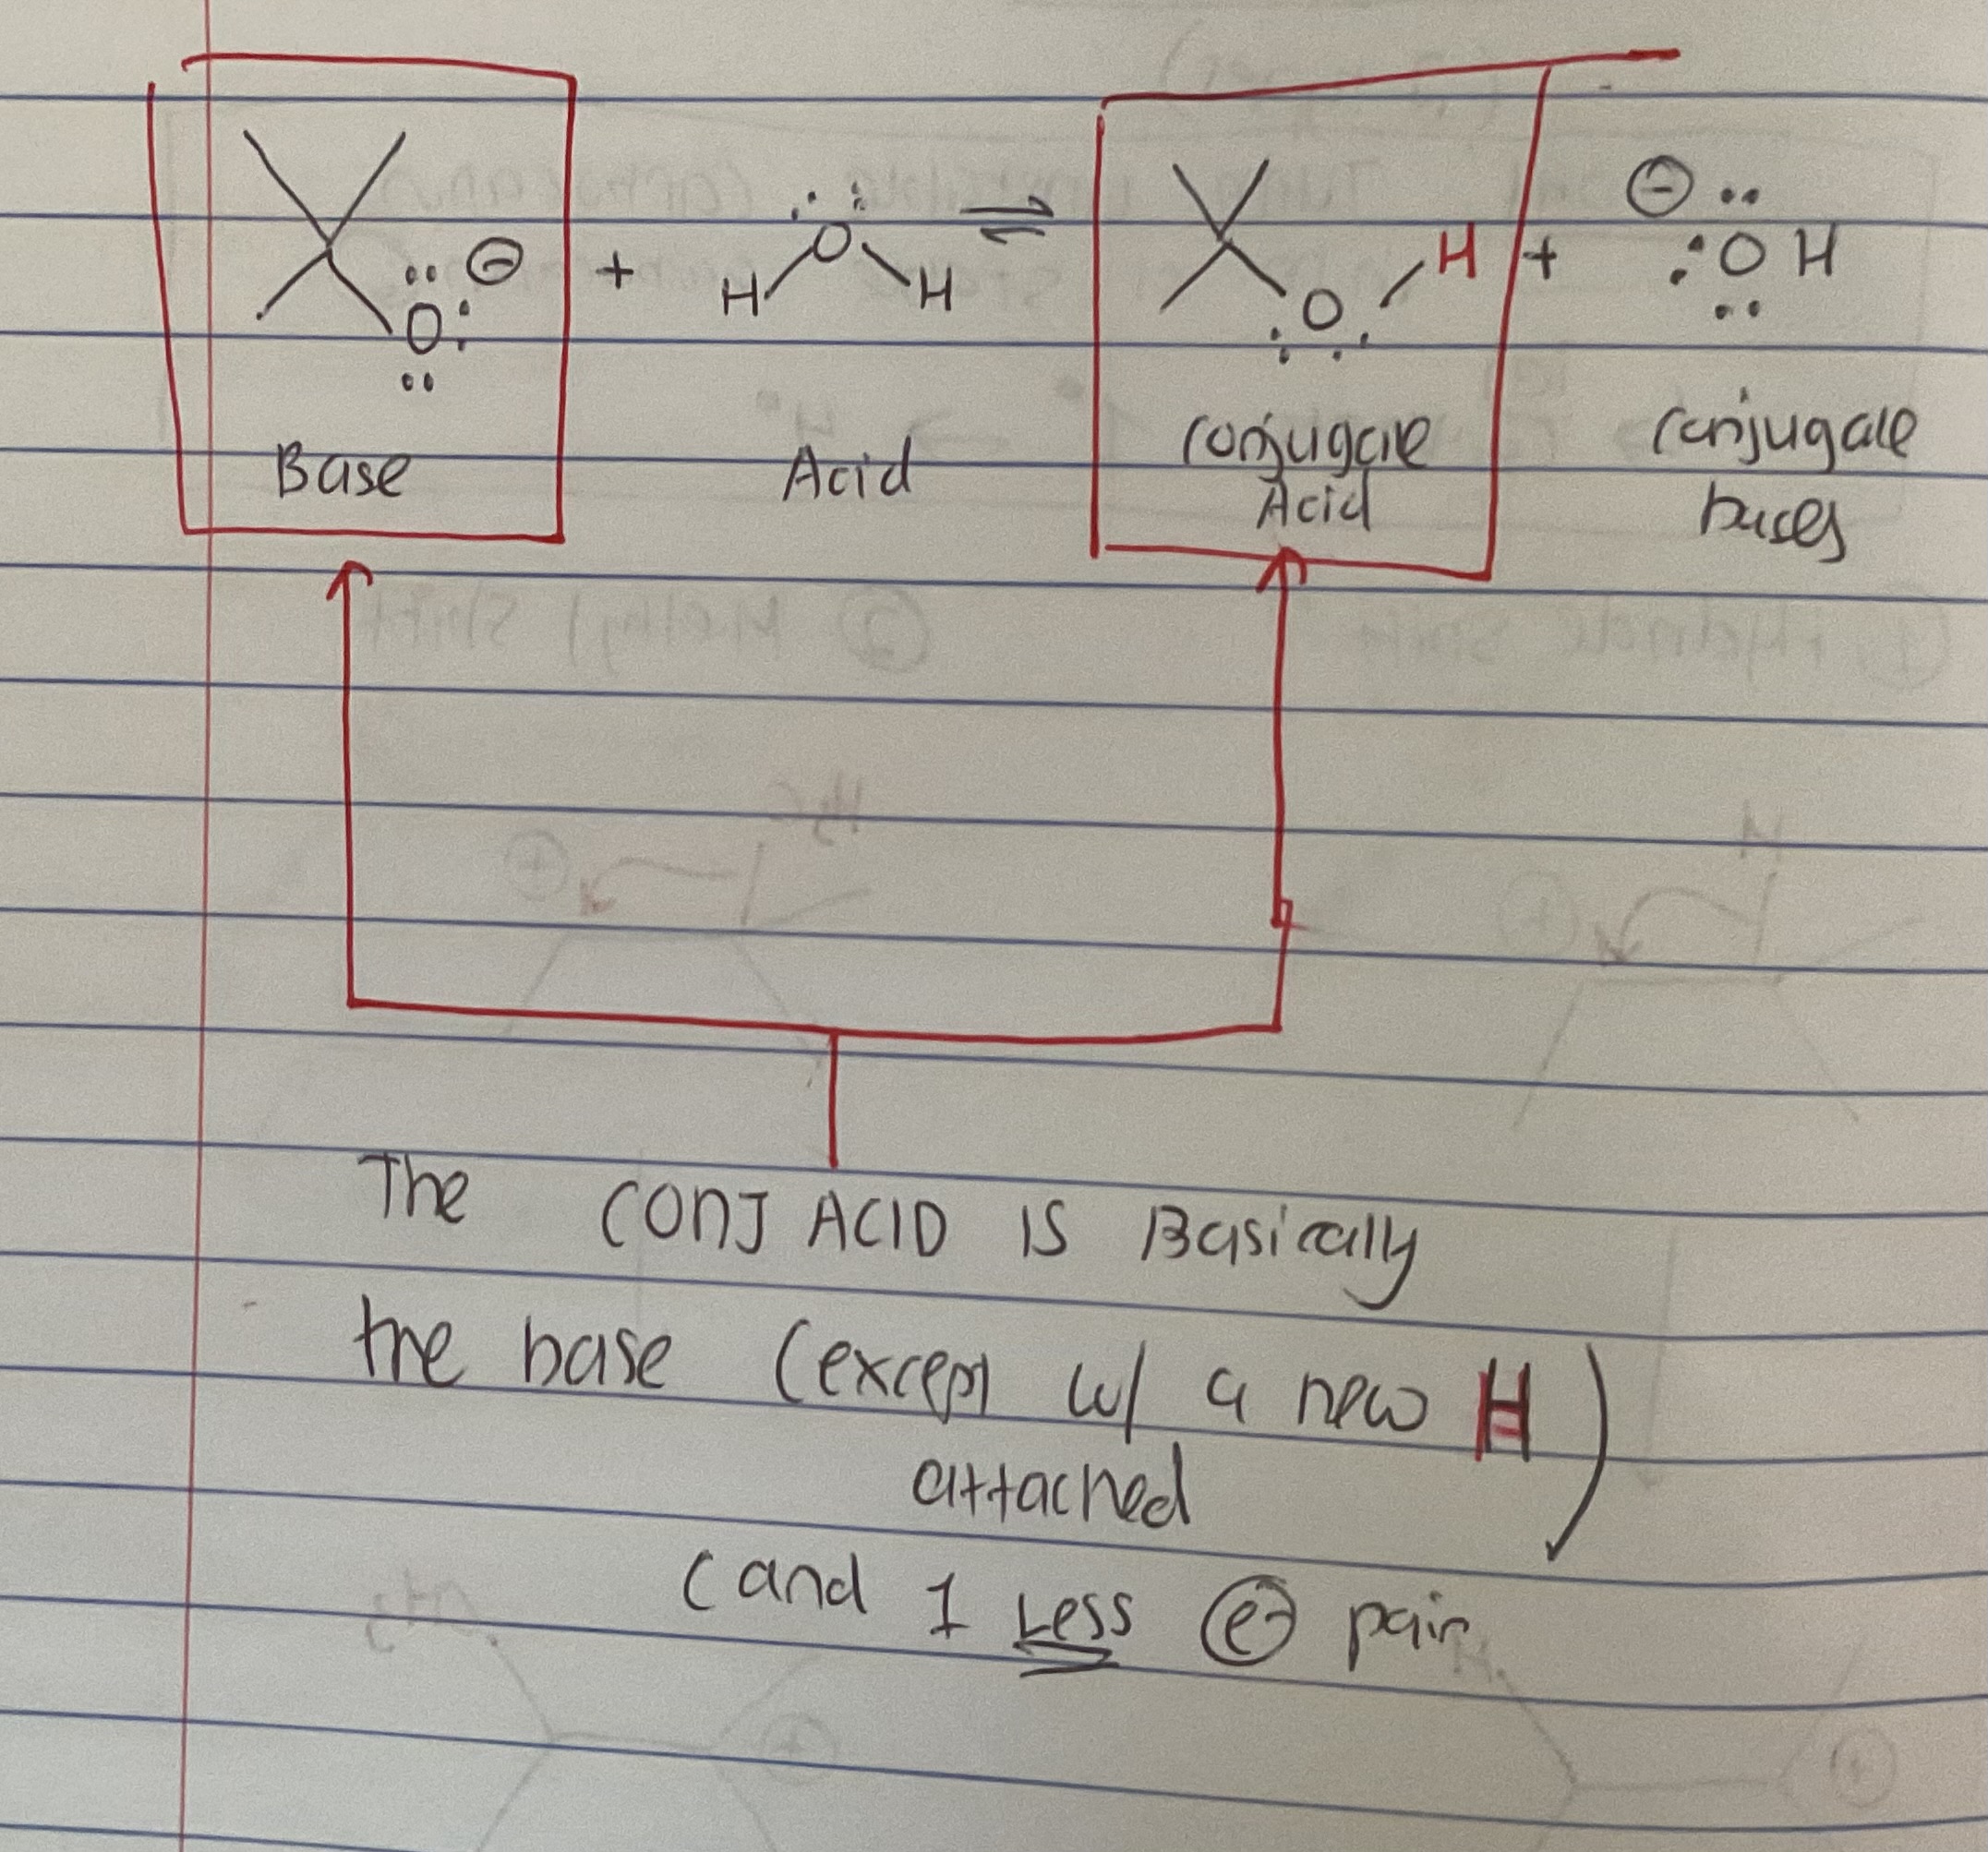 ⊖ + H O H ⇌ H + ⊖
O O :OH
Base Acid Conjugate Conjugate
Acid bases
The CONJ ACID IS Basically
the base (except w/ a new H)
attached
(and 1 Less e- pair